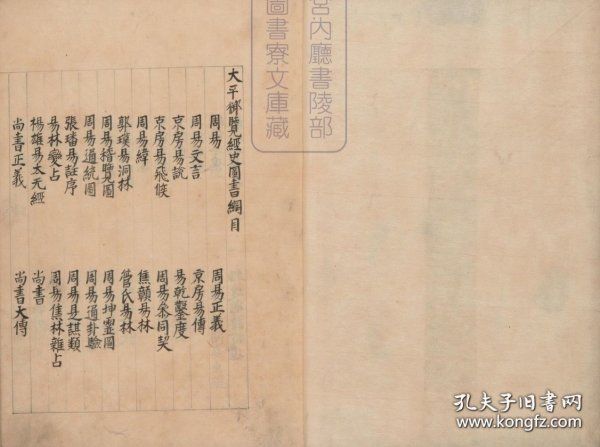 宮內廳書陵部
圖書寮文庫藏
大平御覽經史圖書綱目
周易
周易正義
周易文言
京房易傳
京房易說
易乾鑿度
京房易飛候
周易參同契
周易緯
焦贛易林
郭璞易洞林
管氏易林
周易稽覽圖
周易坤靈圖
周易通統圖
周易通卦驗
張璠易註序
周易是謀類
易林變占
周易集林雜占
楊雄易太元經
尚書
尚書正義
尚書大傳
孔夫子旧书网
www.kongfz.com